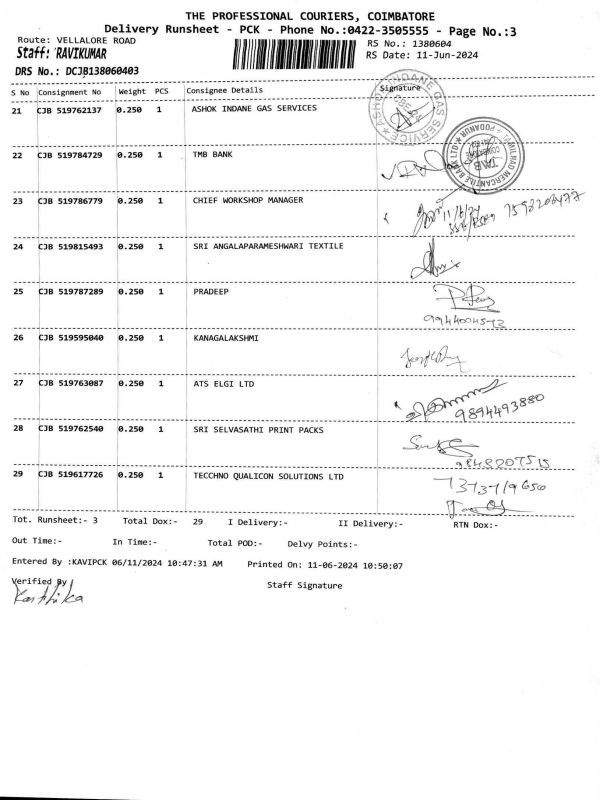 THE PROFESSIONAL COURIERS, COIMBATORE
Delivery Runsheet - PCK - Phone No.:0422-3505555 - Page No.:3
Route: VELLALORE ROAD
RS No.: 1380604
Staff: RAVIKUMAR
RS Date: 11-Jun-2024
DRS No.: DCJB138060403
S No Consignment No Weight PCS Consignee Details Signature
21 CJB 519762137 0.250 1 ASHOK INDANE GAS SERVICES
ASHOK INDANE GAS SERVICE
22 CJB 519784729 0.250 1 TMB BANK
TAMILNAD MERCANTILE BANK LTD PODANUR
TMB
23 CJB 519786779 0.250 1 CHIEF WORKSHOP MANAGER
11/6/24
7598208477
24 CJB 519815493 0.250 1 SRI ANGALAPARAMESHWARI TEXTILE
25 CJB 519787289 0.250 1 PRADEEP
26 CJB 519595040 0.250 1 KANAGALAKSHMI
27 CJB 519763087 0.250 1 ATS ELGI LTD
9894493880
28 CJB 519762540 0.250 1 SRI SELVASATHI PRINT PACKS
29 CJB 519617726 0.250 1 TECCHNO QUALICON SOLUTIONS LTD
Tot. Runsheet:- 3 Total Dox:- 29 I Delivery:- II Delivery:- RTN Dox:-
Out Time:- In Time:- Total POD:- Delvy Points:-
Entered By :KAVIPCK 06/11/2024 10:47:31 AM Printed On: 11-06-2024 10:50:07
Verified By Staff Signature
Karthika